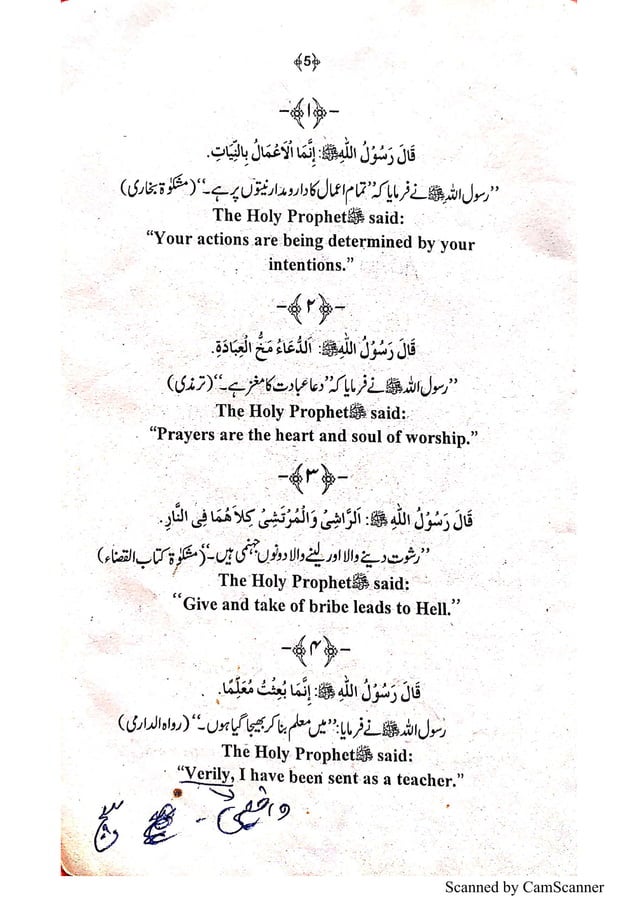 ﴿5﴾
-﴿۱﴾-
قَالَ رَسُوْلُ اللّٰهِﷺ: اِنَّمَا الْاَعْمَالُ بِالنِّيَّاتِ.
’’رسول اللہﷺ نے فرمایا کہ ’’تمام اعمال کا دارومدار نیتوں پر ہے۔‘‘ (مشکوٰۃ بخاری)
The Holy Prophetﷺ said:
“Your actions are being determined by your
intentions.”
-﴿۲﴾-
قَالَ رَسُوْلُ اللّٰهِﷺ: اَلدُّعَاءُ مُخُّ الْعِبَادَةِ.
’’رسول اللہ ﷺ نے فرمایا کہ ’’دعا عبادت کا مغز ہے۔‘‘ (ترمذی)
The Holy Prophetﷺ said:
“Prayers are the heart and soul of worship.”
-﴿۳﴾-
قَالَ رَسُوْلُ اللّٰهِ ﷺ: اَلرَّاشِيْ وَالْمُرْتَشِيْ كِلَاهُمَا فِي النَّارِ.
’’رشوت دینے والا اور لینے والا دونوں جہنمی ہیں۔‘‘ (مشکوٰۃ کتاب القضاء)
The Holy Prophetﷺ said:
“Give and take of bribe leads to Hell.”
-﴿۴﴾-
قَالَ رَسُوْلُ اللّٰهِ ﷺ: اِنَّمَا بُعِثْتُ مُعَلِّمًا.
رسول اللہﷺ نے فرمایا: ’’میں معلم بنا کر بھیجا گیا ہوں۔‘‘ (رواہ الدارمی)
The Holy Prophetﷺ said:
“Verily, I have been sent as a teacher.”
واقعی -
Scanned by CamScanner